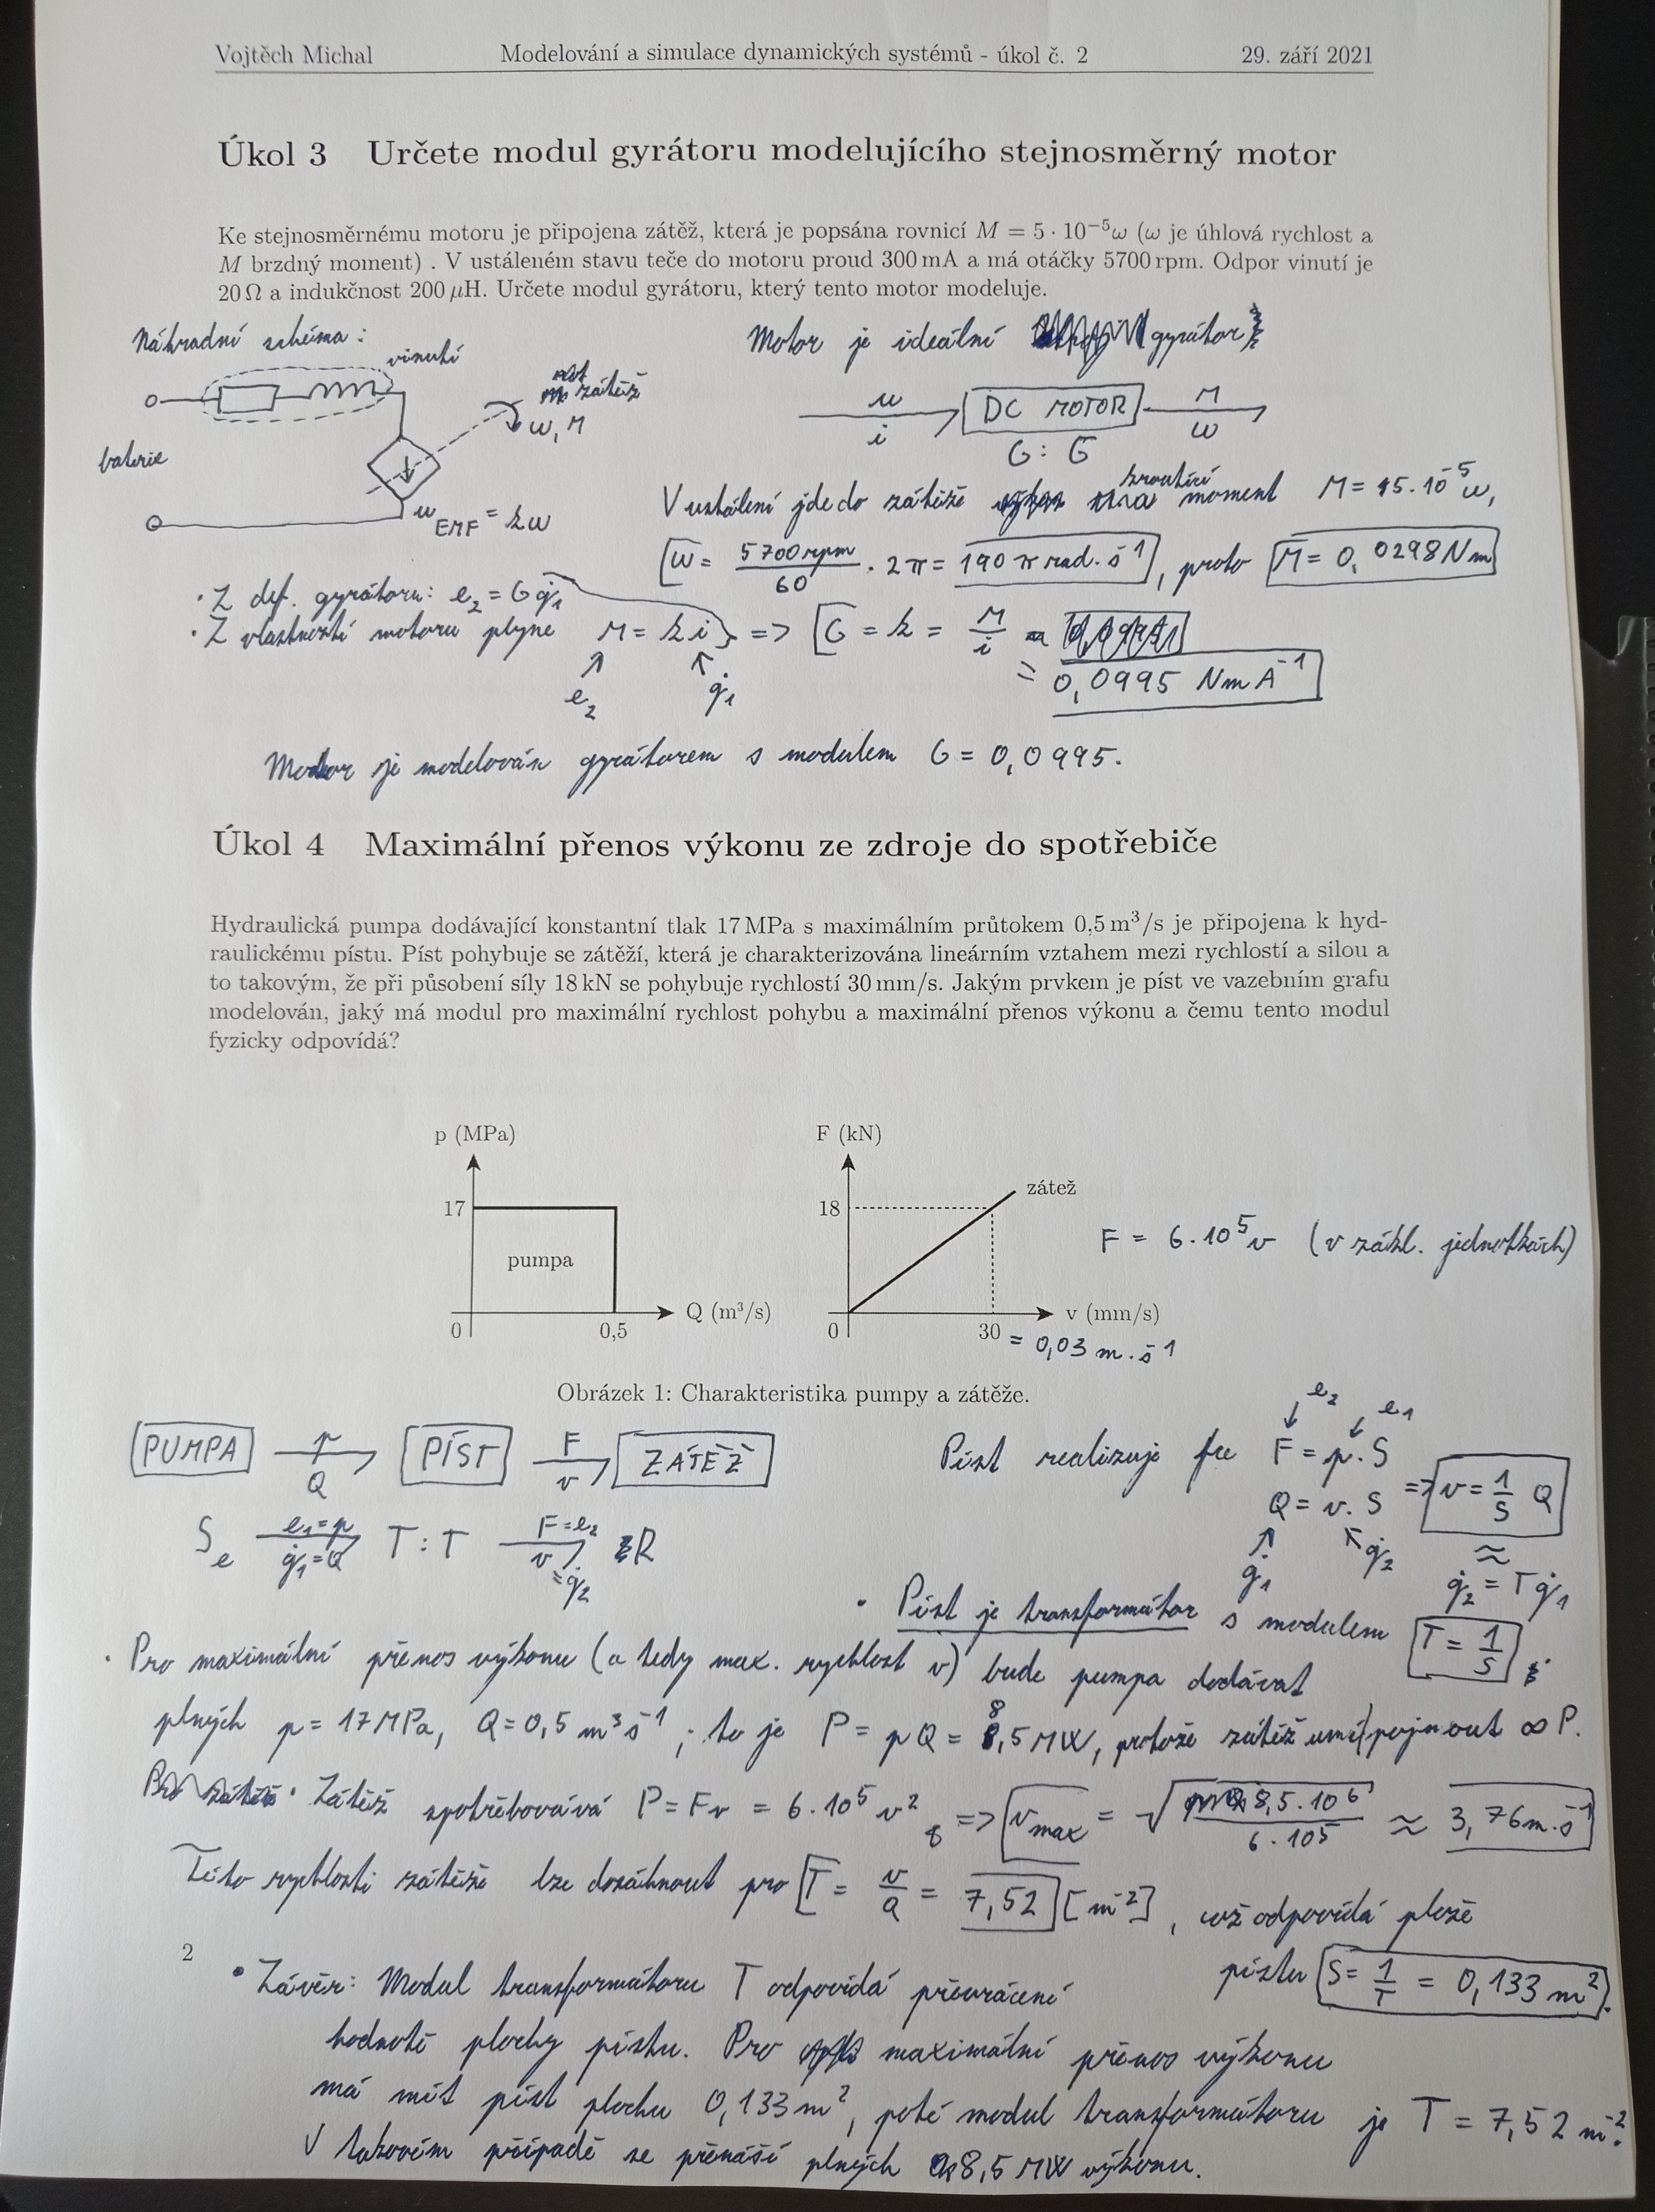 Vojtěch Michal Modelování a simulace dynamických systémů - úkol č. 2 29. září 2021
Úkol 3 Určete modul gyrátoru modelujícího stejnosměrný motor
Ke stejnosměrnému motoru je připojena zátěž, která je popsána rovnicí M = 5 · 10⁻⁵ω (ω je úhlová rychlost a
M brzdný moment) . V ustáleném stavu teče do motoru proud 300 mA a má otáčky 5700 rpm. Odpor vinutí je
20 Ω a indukčnost 200 μH. Určete modul gyrátoru, který tento motor modeluje.
Náhradní schéma:
vinutí
zátěž
ω, M
baterie
u_EMF = kω
Motor je ideální gyrátor
u
i
DC MOTOR
M
ω
G : G
V ustálení jde do zátěže kroutící moment M = 5·10⁻⁵ω,
ω = 5700 rpm / 60 · 2π = 190 π rad·s⁻¹, proto M = 0,0298 Nm
· Z def. gyrátoru: e₂ = G q̇₁
· Z vlastností motoru plyne M = k i => G = k = M/i
= 0,0995 NmA⁻¹
e₂ q̇₁
Motor je modelován gyrátorem s modulem G = 0,0995.
Úkol 4 Maximální přenos výkonu ze zdroje do spotřebiče
Hydraulická pumpa dodávající konstantní tlak 17 MPa s maximálním průtokem 0,5 m³/s je připojena k hyd-
raulickému pístu. Píst pohybuje se zátěží, která je charakterizována lineárním vztahem mezi rychlostí a silou a
to takovým, že při působení síly 18 kN se pohybuje rychlostí 30 mm/s. Jakým prvkem je píst ve vazebním grafu
modelován, jaký má modul pro maximální rychlost pohybu a maximální přenos výkonu a čemu tento modul
fyzicky odpovídá?
p (MPa)
17
pumpa
Q (m³/s)
0
0,5
F (kN)
18
zátež
v (mm/s)
0
30 = 0,03 m·s⁻¹
F = 6·10⁵ v (v zákl. jednotkách)
Obrázek 1: Charakteristika pumpy a zátěže.
PUMPA p Q PÍST F v ZÁTĚŽ
Sₑ e₁=p q̇₁=Q T : T F=e₂ v=q̇₂ R
e₂ e₁
Píst realizuje fce F = p·S
Q = v·S => v = 1/S Q
q̇₁ q̇₂
≈
q̇₂ = T q̇₁
· Píst je transformátor s modulem T = 1/S
· Pro maximální přenos výkonu (a tedy max. rychlost v) bude pumpa dodávat
plných p = 17 MPa, Q = 0,5 m³s⁻¹; to je P = pQ = 8,5 MW, protože zátěž umí pojmout ∞ P.
· Zátěž spotřebovává P = Fv = 6·10⁵ v² => v_max = √(8,5·10⁶ / 6·10⁵) ≈ 3,76 m·s⁻¹
Této rychlosti zátěže lze dosáhnout pro T = v/Q = 7,52 [m⁻²], což odpovídá ploše
pístu S = 1/T = 0,133 m².
2
· Závěr: Modul transformátoru T odpovídá převrácené
hodnotě plochy pístu. Pro maximální přenos výkonu
má mít píst plochu 0,133 m², poté modul transformátoru je T = 7,52 m⁻².
V takovém případě se přenáší plných 8,5 MW výkonu.